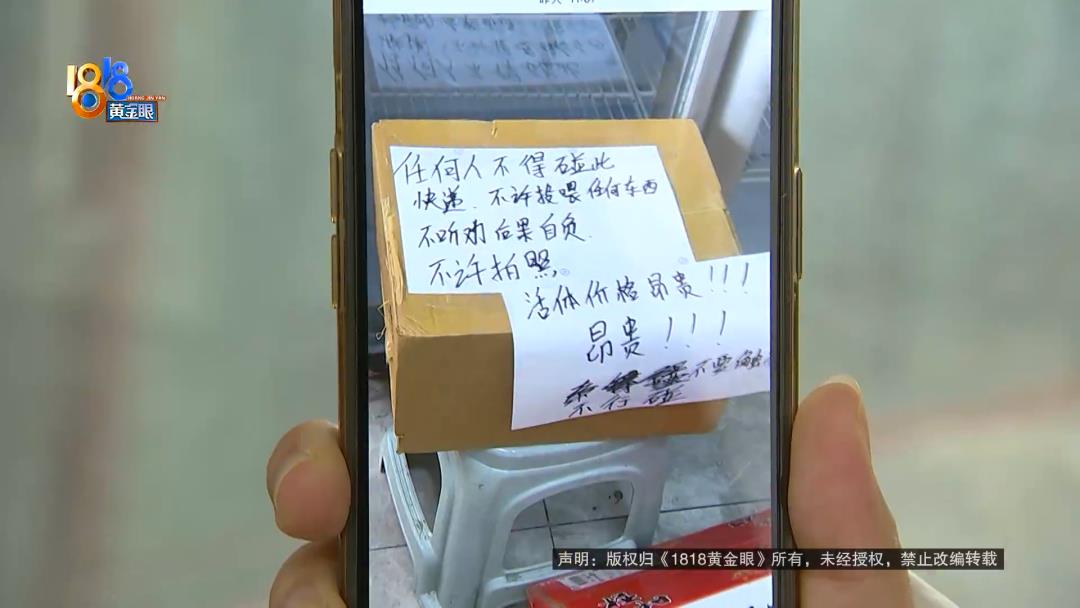 1818
HUANG JIN YAN
黄金眼
任何人不得碰此
快递.不许投喂任何东西
不听劝后果自负.
不许拍照。
活体价格昂贵!!!
昂贵!!!
不要触
声明：版权归《1818黄金眼》所有，未经授权，禁止改编转载